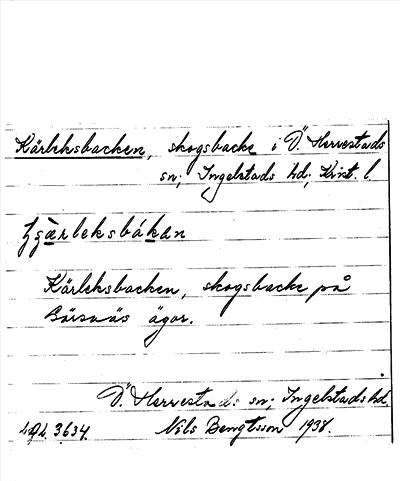 Kärleksbacken, skogsbacke i Ö. Herrestads
sn; Ingelstads hd; Krist. l
Kärleksbacken, skogsbacke på
ägor.
Ö. Herrestads sn; Ingelstads hd.
3634. Nils Bengtsson 1938.